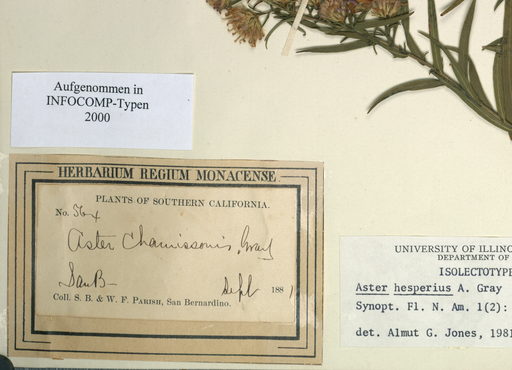 Aufgenommen in
INFOCOMP-Typen
2000
HERBARIUM REGIUM MONACENSE
PLANTS OF SOUTHERN CALIFORNIA.
No. 564
Aster Chamissonis, Gray
San B—
Sept 1881
Coll. S. B. & W. F. PARISH, San Bernardino.
UNIVERSITY OF ILLINO
DEPARTMENT OF
ISOLECTOTYPE
Aster hesperius A. Gray
Synopt. Fl. N. Am. 1(2):
det. Almut G. Jones, 1981